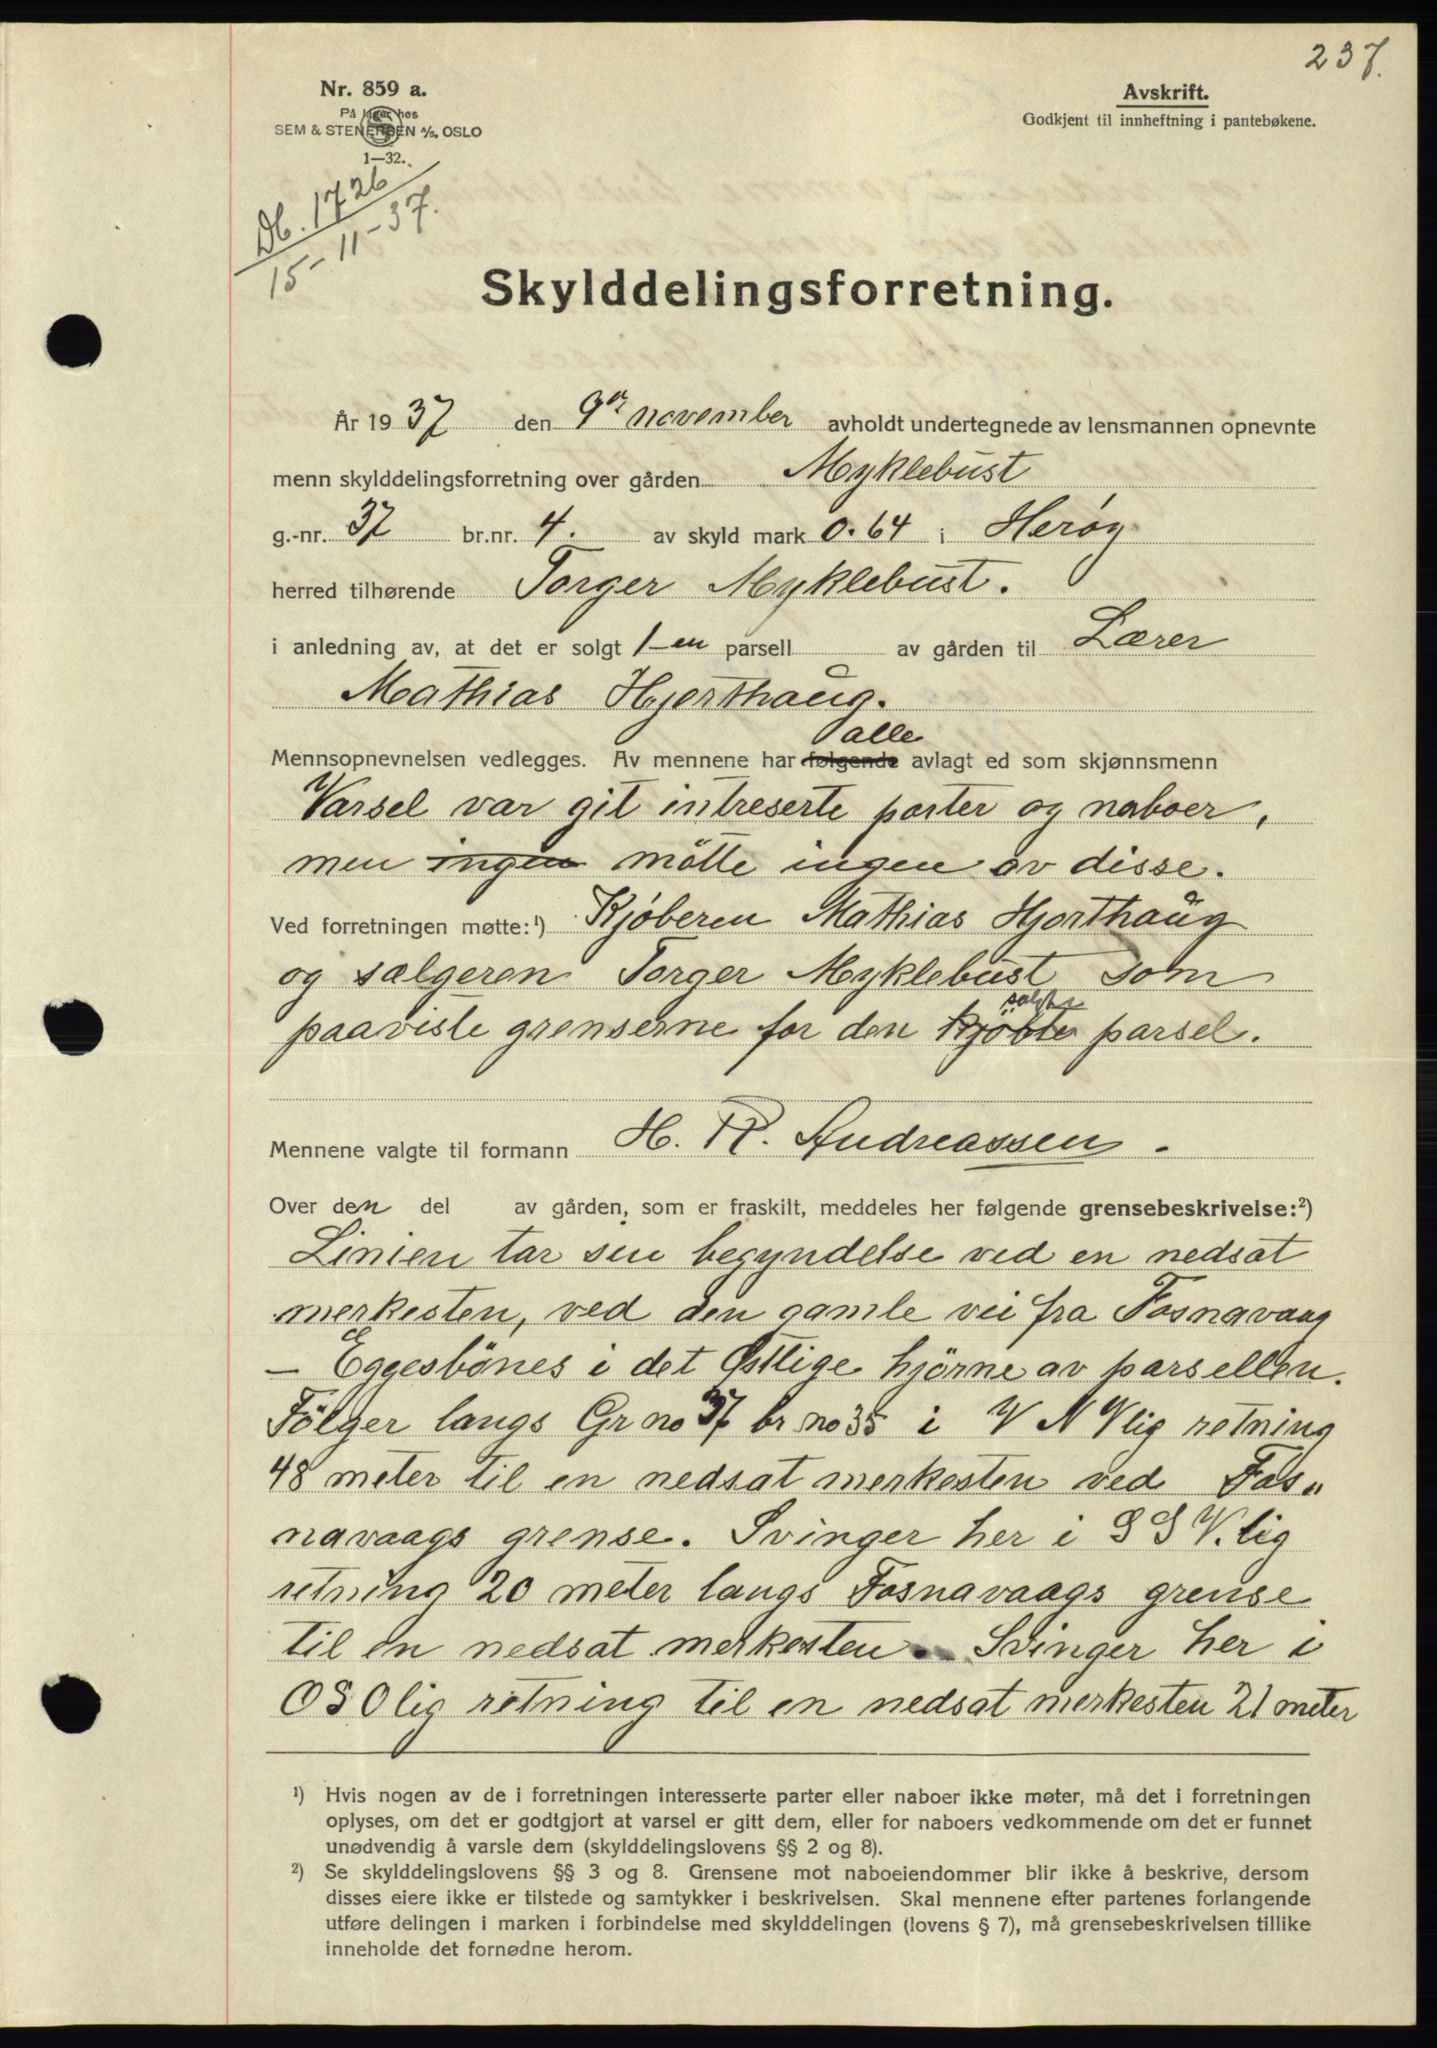 237.
Nr. 859 a.
På lager hos
SEM & STENERSEN A/S, OSLO
1—32.
Avskrift.
Godkjent til innheftning i pantebøkene.
Db. 1726
15-11-37.
Skylddelingsforretning.
År 1937 den 9de november avholdt undertegnede av lensmannen opnevnte
menn skylddelingsforretning over gården Myklebust
g.-nr. 37 br.nr. 4. av skyld mark 0.64 i Herøy
herred tilhørende Torger Myklebust.
i anledning av, at det er solgt 1-en parsell av gården til Lærer
Mathias Hjorthaug.
alle
Mennsopnevnelsen vedlegges. Av mennene har følgende avlagt ed som skjønnsmenn
Varsel var git intreserte parter og naboer,
men ingen mötte ingen av disse.
Ved forretningen møtte:¹) Kjøberen Mathias Hjorthaug
og sælgeren Torger Myklebust som
solgte
paaviste grenserne for den kjöbte parsel.
Mennene valgte til formann H. R. Andreassen.
Over den del av gården, som er fraskilt, meddeles her følgende grensebeskrivelse:²)
Linien tar sin begyndelse ved en nedsat
merkesten, ved den gamle vei fra Fosnavaag
— Eggesbönes i det Østlige hjörne av parsellen.
Fölger langs Gr no 37 br no 35 i V N Vlig retning
48 meter til en nedsat merkesten ved Fos„
navaags grense. Svinger her i S S V.lig
retning 20 meter langs Fosnavaags grense
til en nedsat merkesten. Svinger her i
O S Olig retning til en nedsat merkesten 21 meter
¹) Hvis nogen av de i forretningen interesserte parter eller naboer ikke møter, må det i forretningen
oplyses, om det er godtgjort at varsel er gitt dem, eller for naboers vedkommende om det er funnet
unødvendig å varsle dem (skylddelingslovens §§ 2 og 8).
²) Se skylddelingslovens §§ 3 og 8. Grensene mot naboeiendommer blir ikke å beskrive, dersom
disses eiere ikke er tilstede og samtykker i beskrivelsen. Skal mennene efter partenes forlangende
utføre delingen i marken i forbindelse med skylddelingen (lovens § 7), må grensebeskrivelsen tillike
inneholde det fornødne herom.